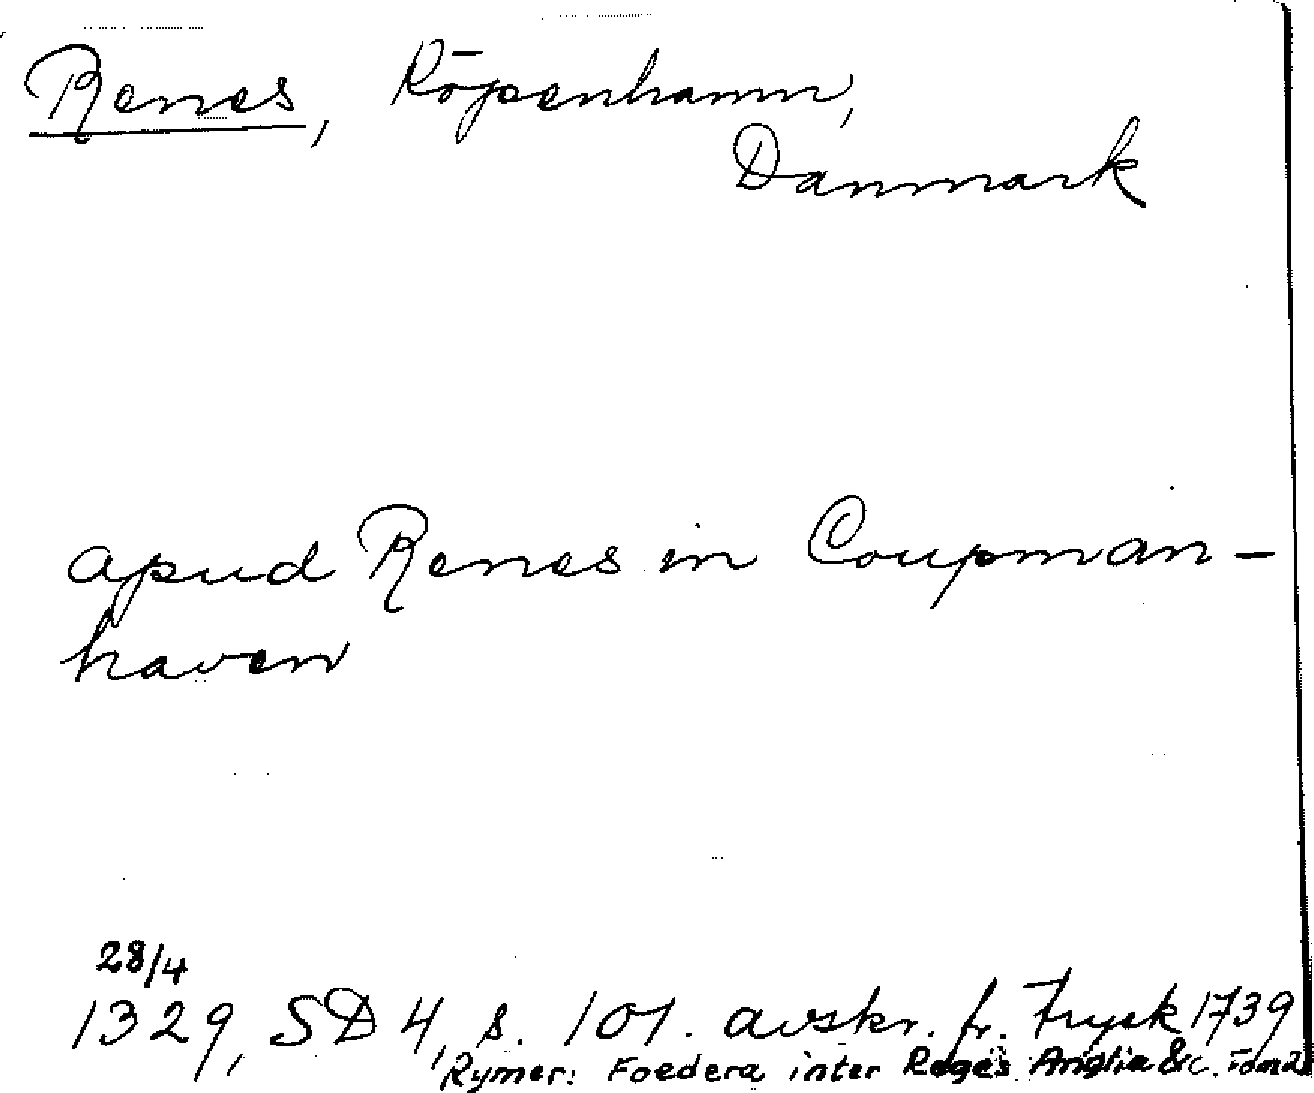 Renes, Köpenhamn,
Danmark
apud Renes in Coupman-
haven
28/4
1329, SD 4, s. 101. avskr. fr. Tryck 1739
Rymer: Foedera inter Reges Anglia &c. Tom 2